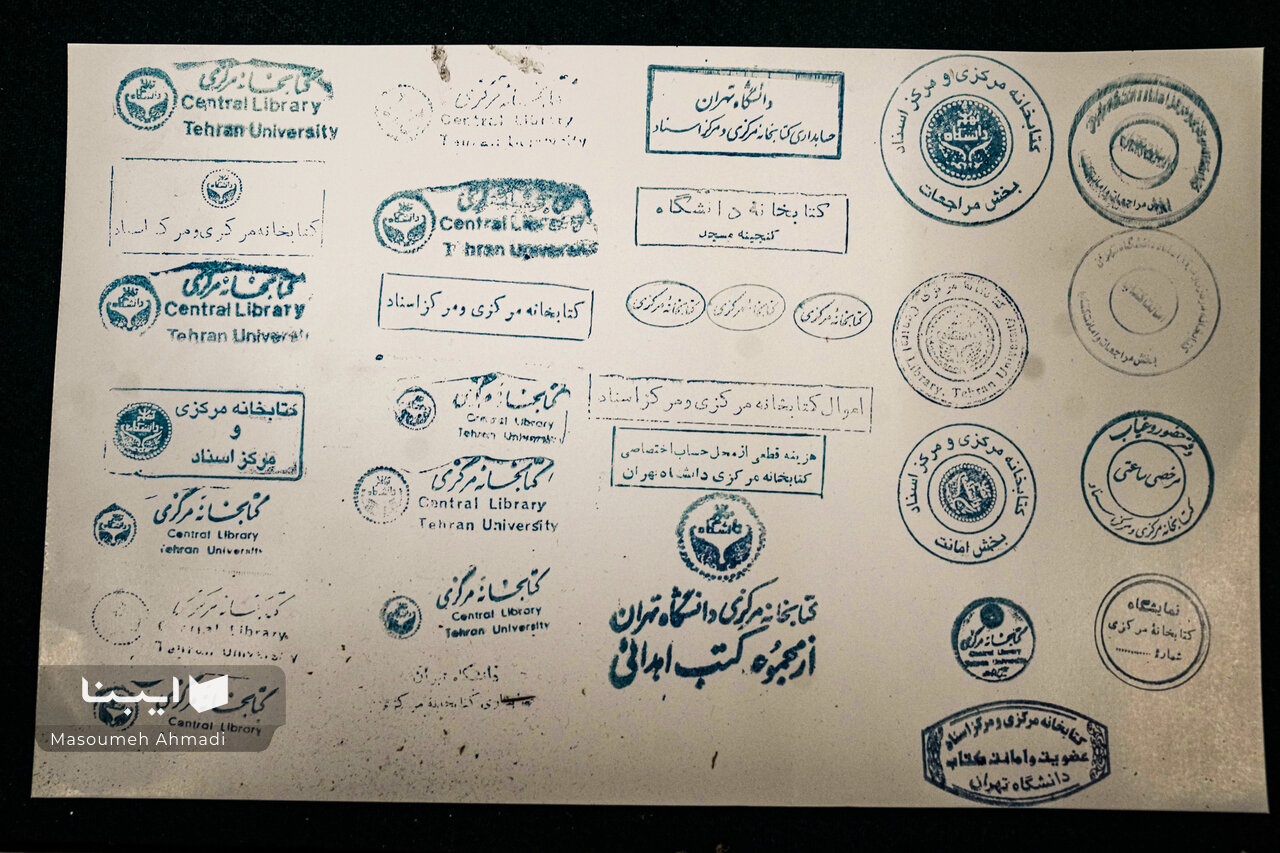 کتابخانهٔ مرکزی
Central Library
Tehran University
کتابخانه مرکزی و مرکز اسناد
کتابخانهٔ مرکزی
Central Library
Tehran University
کتابخانه مرکزی
و
مرکز اسناد
دانشگاه تهران
کتابخانهٔ مرکزی
Central Library
Tehran University
Central Library
Tehran University
کتابخانهٔ مرکزی
Central Library
Central Library
Tehran University
Central Library
Tehran University
کتابخانه مرکزی و مرکز اسناد
کتابخانهٔ
Central Library
Tehran University
کتابخانهٔ مرکزی
Central Library
Tehran University
کتابخانهٔ مرکزی
Central Library
Tehran University
دانشگاه تهران
دانشگاه تهران
حسابداری کتابخانه مرکزی و مرکز اسناد
کتابخانهٔ دانشگاه
گنجینه مسجد
کتابخانهٔ مرکزی
کتابخانهٔ مرکزی
کتابخانهٔ مرکزی
اموال کتابخانه مرکزی و مرکز اسناد
هزینه قطعی از محل حساب اختصاصی
کتابخانه مرکزی دانشگاه تهران
دانشگاه
کتابخانه مرکزی دانشگاه تهران
از مجموعه کتب اهدائی
کتابخانه مرکزی و مرکز اسناد
دانشگاه تهران
بخش مراجعات
کتابخانهٔ مرکزی
Central Library, Tehran University
کتابخانه مرکزی و مرکز اسناد
بخش امانت
کتابخانهٔ مرکزی
Central Library
Tehran University
کتابخانه مرکزی و مرکز اسناد
عضویت و امانت کتاب
دانشگاه تهران
بخش مراجعات و امانت
حضور و غیاب
مرخصی ساعتی
کتابخانه مرکزی و مرکز اسناد
نمایشگاه
کتابخانهٔ مرکزی
شمارهٔ ............
ایبنا
Masoumeh Ahmadi